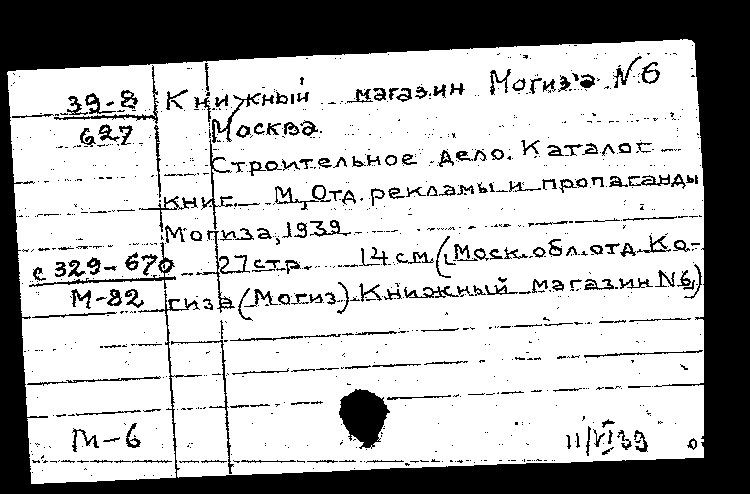 39-8 Книжный магазин Могиз'а N6
627 Москва
Строительное дело. Каталог
книг М., Отд. рекламы и пропаганды
Могиза, 1939
с 329-670 27стр. 14см. (Моск. обл. отд. Ко-
М-82 гиза (Могиз). Книжный магазин N6)
М-6 11/VI 39